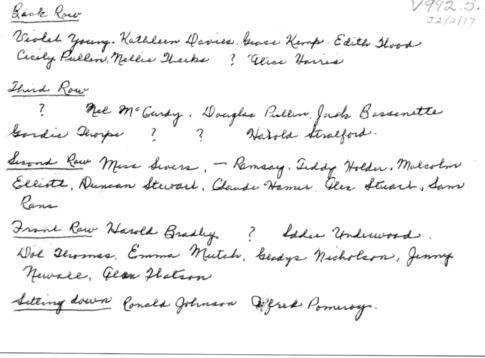 V992.5.
J2/2/17
Back Row
Violet Young. Kathleen Davies. Grace Kemp. Edith Hood
Cicily Pullen, Nellie ? Alice Harris
Third Row
? Nel McCurdy. Douglas Pullen, Jack Bassenette
Gordie Thorpe ? ? Harold Stratford.
Second Row Miss Sivers, — Ramsay. Teddy Holder, Malcolm
Elliott, Duncan Stewart, Claude Hamer. Alex Stuart, Sam
Rans
Front Row Harold Bradley ? Eddie Underwood.
Dot Thomas. Emma Mutch, Gladys Nicholson, Jenny
Newall, Alex
Sitting down Ronald Johnson Alfred Pomeroy.